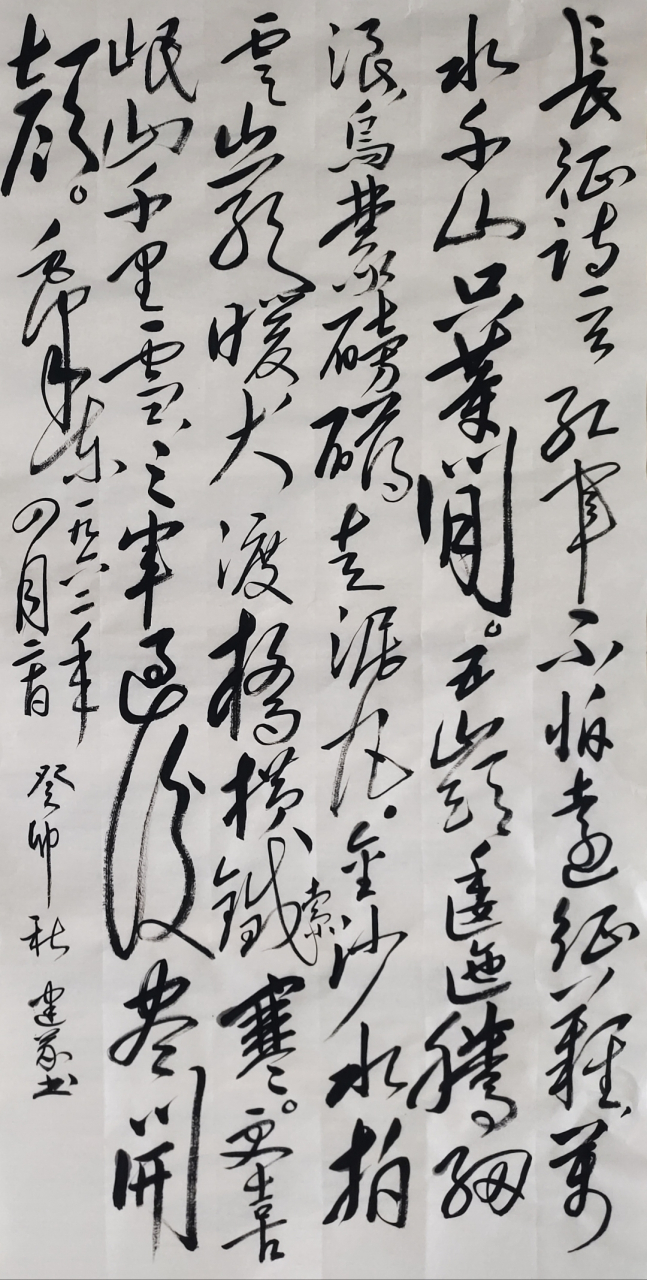 長征詩 紅軍不怕遠征難萬
水千山只等閒。五嶺逶迤騰細
浪烏蒙磅礴走泥丸。金沙水拍
雲崖暖大渡橋橫鐵索寒。更喜
岷山千里雪三軍過後盡開
顏。毛澤東一九六二年
四月二十日
癸卯秋 建 书